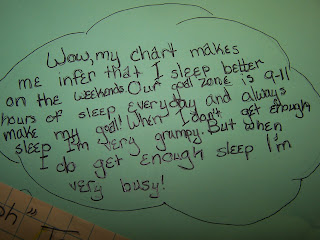 Wow, my chart makes
me infer that I sleep better
on the weekends. Our goal zone is 9-11
hours of sleep everyday and always
make my goal! When I don't get enough
sleep I'm very grumpy. But when
I do get enough sleep I'm
very busy!